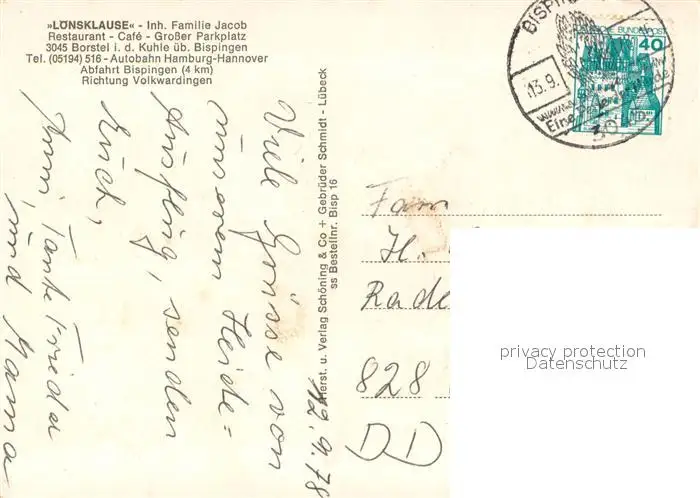 »LÖNSKLAUSE« - Inh. Familie Jacob
Restaurant - Café - Großer Parkplatz
3045 Borstel i. d. Kuhle üb. Bispingen
Tel. (05194) 516 - Autobahn Hamburg-Hannover
Abfahrt Bispingen (4 km)
Richtung Volkwardingen
12.9.78
Viele Grüsse von
unserem Heide=
Ausflug, senden
Euch,
Tante Frieda
und Mama
Herst. u. Verlag Schöning & Co + Gebrüder Schmidt - Lübeck
ss Bestellnr. Bisp 16
BISPIN
13.9.
Eine
30
DEUTSCHE BUNDESPOST
40
Fam
H.
Rade
828
DD
privacy protection
Datenschutz